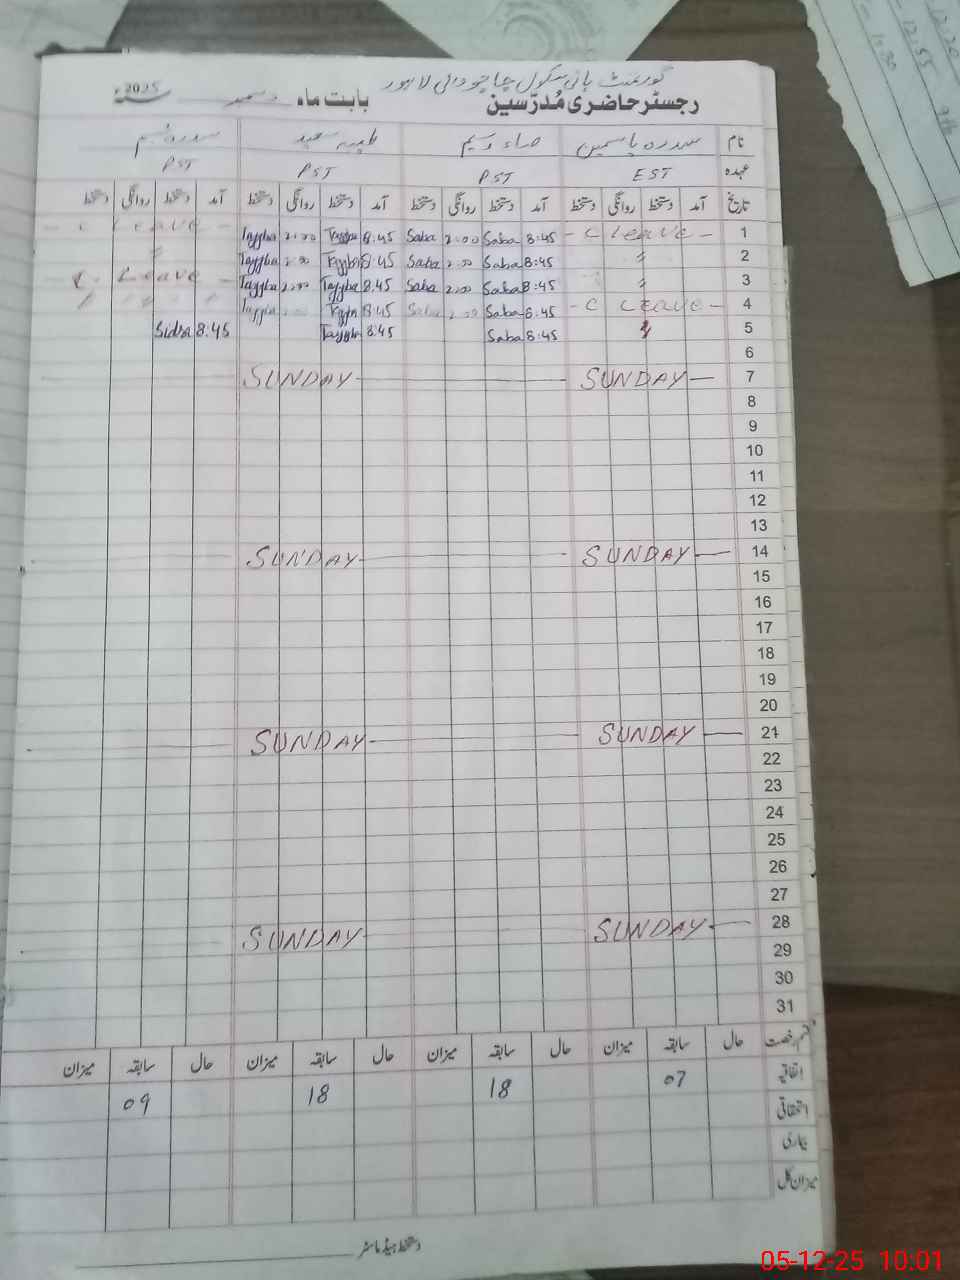 گورنمنٹ ہائی سکول چاچووالی لاہور
رجسٹر حاضری مُدرّسین بابت ماہ دسمبر سنہ 2025ء
نام سدرہ یاسمین صباء وسیم طیبہ سعید
عہدہ EST PST PST PST
تاریخ آمد دستخط روانگی دستخط آمد دستخط روانگی دستخط آمد دستخط روانگی دستخط آمد دستخط روانگی دستخط
1 - C Leave - 8:45 Saba 2:00 Saba 8:45 Tayyba 2:00 Tayyba - C Leave -
2 " 8:45 Saba 2:00 Saba 8:45 Tayyba 2:00 Tayyba "
3 " 8:45 Saba 2:00 Saba 8:45 Tayyba 2:00 Tayyba C Leave -
4 - C Leave - 8:45 Saba 2:00 Saba 8:45 Tayyba 2:00 Tayyba " " " "
5 8:45 Saba 8:45 Tayyba 8:45 Sidra
6
7 SUNDAY SUNDAY
8
9
10
11
12
13
14 SUNDAY SUNDAY
15
16
17
18
19
20
21 SUNDAY SUNDAY
22
23
24
25
26
27
28 SUNDAY SUNDAY
29
30
31
قسم رخصت حال سابقہ میزان حال سابقہ میزان حال سابقہ میزان حال سابقہ میزان
اتفاقیہ 07 18 18 09
استحقاقی
بیماری
میزان کل
دستخط ہیڈ ماسٹر
05-12-25 10:01
12:20
12:55
10:30